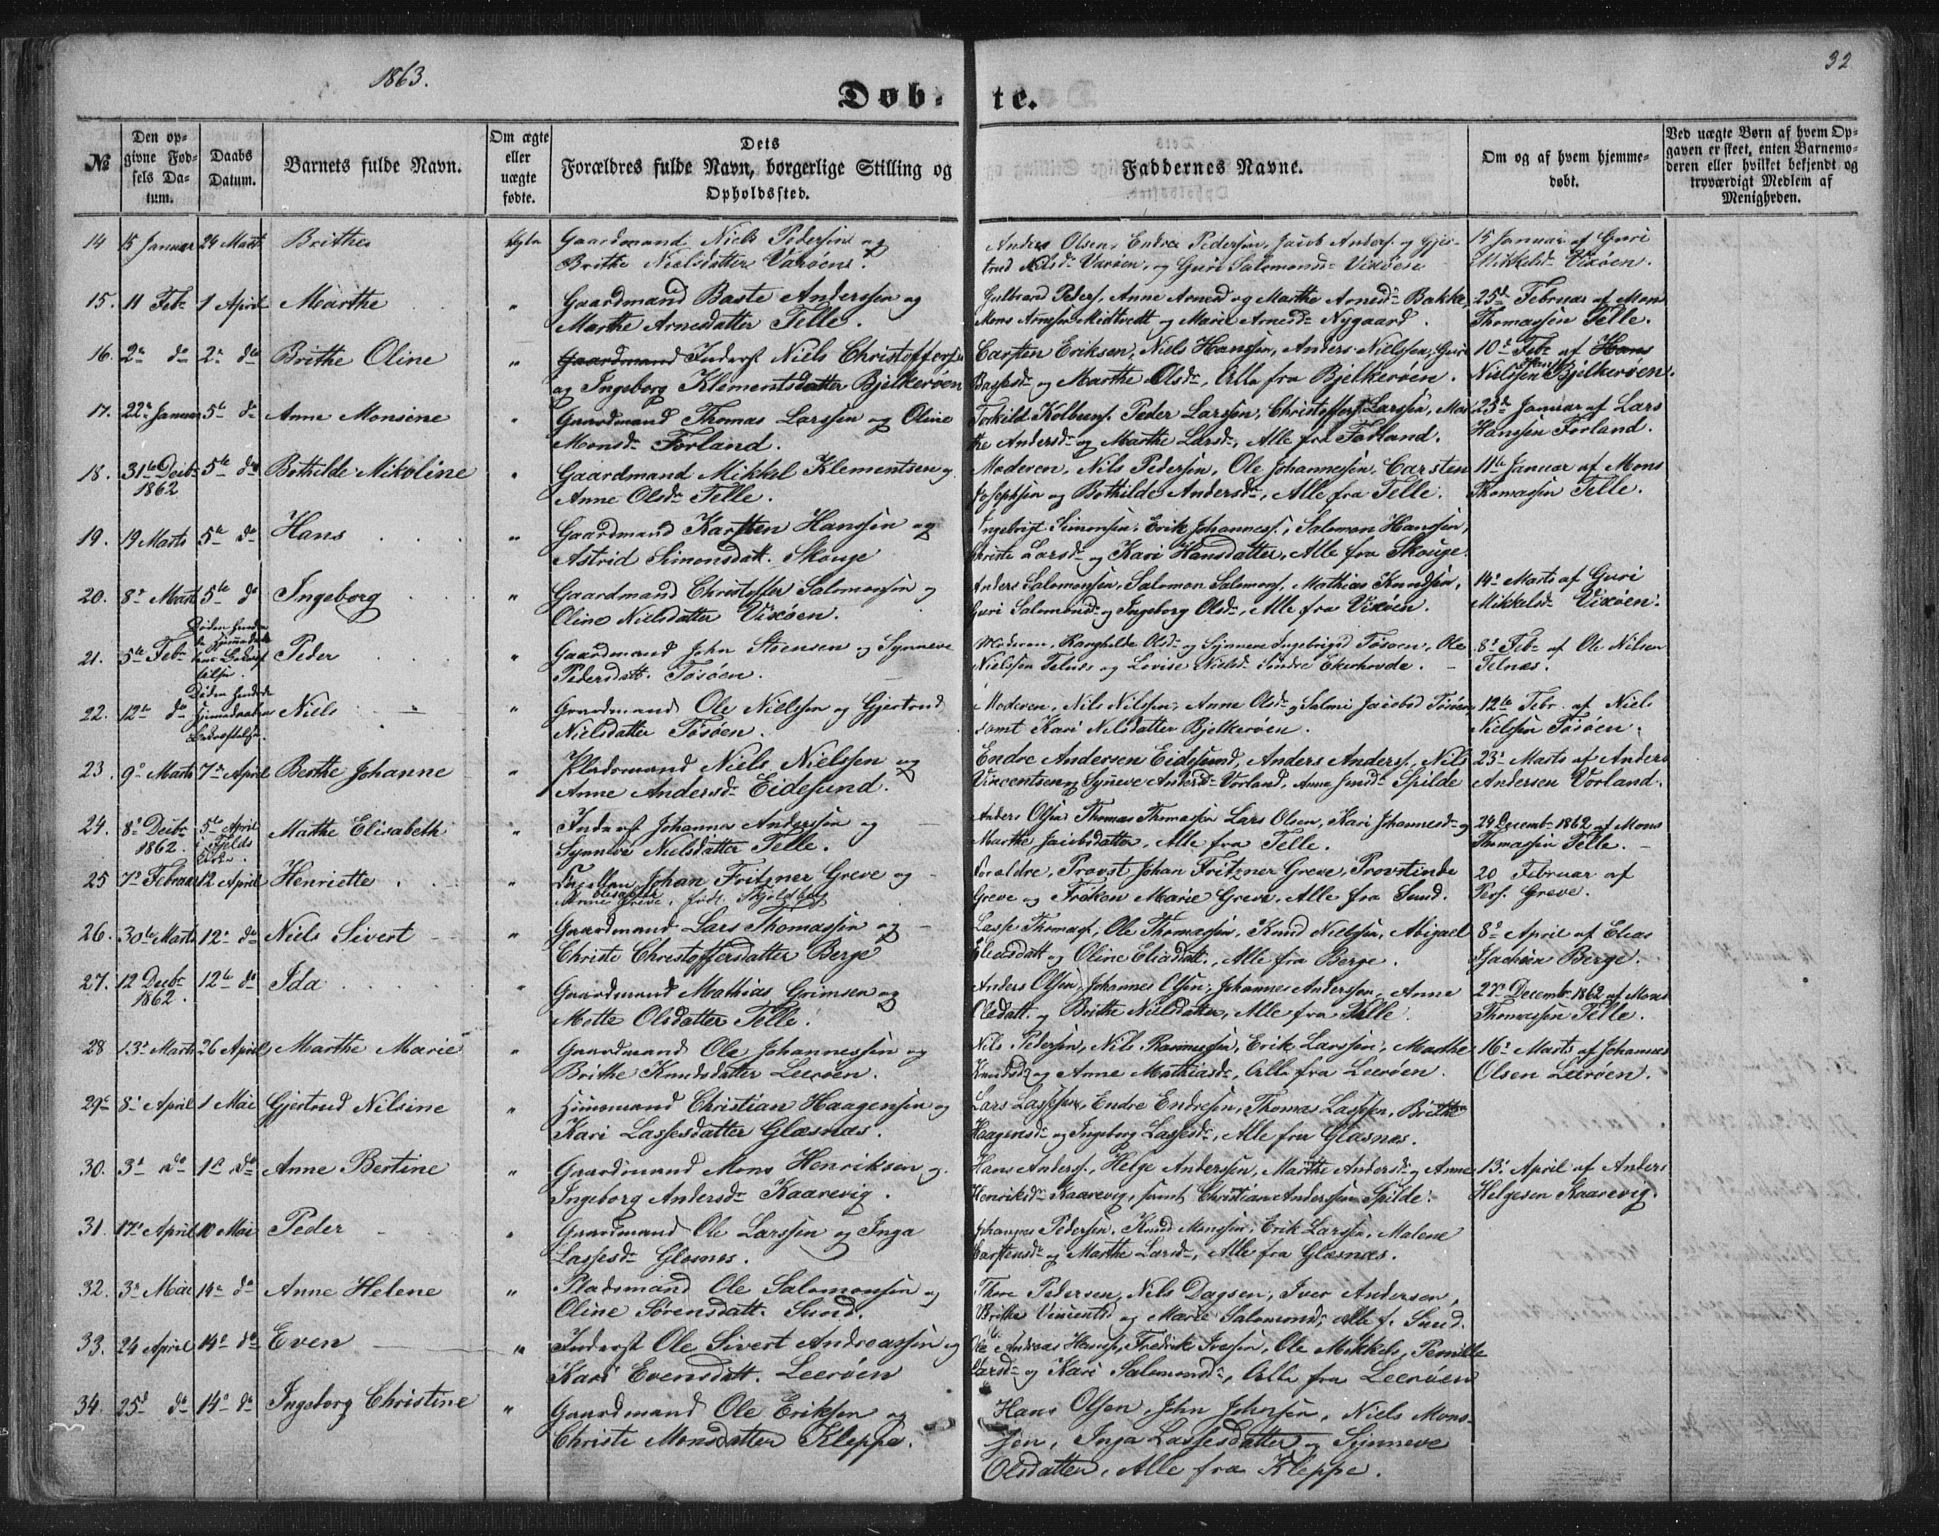 1863.
32
Døb-
te.
№
Den op-
givne Fød-
sels Da-
tum.
Daabs
Datum.
Barnets fulde Navn.
Om ægte
eller
uægte
fødte.
Dets
Forældres fulde Navn, borgerlige Stilling og
Opholdssted.
Faddernes Navne.
Om og af hvem hjemme-
døbt.
Ved uægte Børn af hvem Op-
gaven er skeet, enten Barnemo-
deren eller hvilket bekjendt og
troværdigt Medlem af
Menigheden.
14 15 Januar 24 Marts Brithe Ægte Gaardmand Niels Pedersen og
Brithe Nielsdatter Varøen.
Anders Olsen, Endre Pedersen, Jacob Anders. og Gjer-
trud Nilsd. Varøen, og Guri Salomonsd. Vixøen
15 Januar af Guri
Mikkelsd. Vixøen.
15. 11 Feb. 1 April Marthe " Gaardmand Baste Anderssen og
Marthe Arnesdatter Telle.
Gulbrand Peders, Anne Arnesd og Marthe Arnesd. Bakke,
Mons Arnesen Midtvedt og Marie Arnesd. Nygaard.
25d Februar af Mons
Thomassen Telle.
16. 2. do 2. do Brithe Oline " Gaardmand Inderst Niels Christoffersen
og Ingeborg Klementsdatter Bjelkerøen
Carsten Eriksen, Niels Hanssen, Anders Nielssen, Guri
og Marthe Olsd., Alle fra Bjelkerøen.
10. Feb. af Hans
Nielssen Bjelkerøen.
17. 22. Januar 5te do Anne Monsine " Gaardmand Thomas Larssen og Oline
Monsd. Forland.
Peder Larssen, Christoffer Larssen, Mar-
the Andersd. og Marthe Larsd., Alle fra Forland.
23d Januar af Lars
Hanssen Forland.
18. 31te Decb. 5te do Bothilde Nikoline " Gaardmand Mikkel Klementsen og
1862 Anne Olsd. Telle.
Moderen, Nils Pedersen, Ole Johannessen, Carsten
Josephsen og Bothilde Andersd., Alle fra Telle.
11te Januar af Mons
Thomassen Telle.
19. 19 Marts 5te do Hans " Gaardmand Karsten Hanssen og
Astrid Simonsdatt. Skouge
Ingebrigt Simonsen, Erik Johanness., Salomon Hanssen,
Christe Larsd. og Kari Hansdatter, Alle fra Skouge.
20. 8. Marts 5te do Ingeborg " Gaardmand Christoffer Salomonsen og
Oline Nielsdatter Vixøen.
Anders Salomonsen, Salomon Salomons, Mathias Knudsen,
Guri Salomonsd. og Ingeborg Olsd., Alle fra Vixøen.
14. Marts af Guri
Mikkelsd. Vixøen.
21. 5te Feb. Peder " Gaardmand John Steensen og Synneve
Pedersdatt. Tøsøen.
Moderen, Ranghilde Olsd. og Synneve Ingebrigd Tøsøen, Ole
Nielssen Telnes og Lovise Nielsd. Ekerhovde.
8. Feb. af Ole Nilsen
Telnæs.
22. 12te do Niels " Gaardmand Ole Nielssen og Gjertrud
Nielsdatter Tøsøen.
Moderen, Nils Nilssen, Anne Olsd. og Salmi Jacobsd Tøsøen,
samt Kari Nilsdatter Bjelkerøen.
12te Febr. af Niels
Nielssen Tøsøen.
23. 9. Marts 7. April Berthe Johanne " Pladsmand Niels Nielssen og
Anne Andersd. Eidesund.
Endre Andersen Eidesund, Anders Anders., Nils
Vincentsen og Synneve Andersd. Vorland, Anne Spilde
23. Marts af Anders
Andersen Vorland.
24. 8. Decb. 5te April Marthe Elisabeth " Inderst Johannes Anderssen og
1862. i Fjelds Kirke. Synneve Nielsdatter Telle.
Anders Olsen, Thomas Thomassen, Lars Olsen, Kari Johannesd. og
Marthe Jacobsdatter, Alle fra Telle.
29 Decemb. 1862 af Mons
Thomassen Telle.
25 7. Februar 12 April Henriette " Johan Fritzner Greve og
Greve, født Skjoldborg
Forældre, Provst Johan Fritzner Greve, Provstinde
Greve og Frøken Marie Greve, Alle fra Sund.
20 Februar af
Pers. Greve.
26. 30te Marts 12. do Niels Sivert " Gaardmand Lars Thomassen og
Christe Christoffersdatter Berge
Lasse Thomass., Ole Thomassen, Knud Nielssen, Abigael
Eliasdatt og Oline Eliadatt., Alle fra Berge.
8. April af Elias
Berge.
27. 12 Decb. 12te do Ida " Gaardmand Mathias Grimsen og
1862. Mette Olsdatter Telle.
Anders Olsen, Johannes Olsen, Johannes Anderssen, Anne
Olsdatt. og Brithe Nielsdatter, Alle fra Telle.
27. Decemb. 1862 af Mons
Thomassen Telle.
28 13. Marts 26 April Marthe Marie " Gaardmand Ole Johannessen og
Brithe Knudsdatter Leerøen.
Nils Pedersen, Nils Rasmussen, Erik Larssen, Marthe
Knudsd og Anne Mathiasd., Alle fra Leerøen.
16. Marts af Johannes
Olsen Leerøen.
29. 8. April 1 Mai Gjertrud Nilsine " Huusmand Christian Haagensen og
Kari Lassesdatter Glæsnæs.
Lars Lassesen, Endre Endresen, Thomas Lassen, Brithe
Haagensd. og Ingeborg Lassesd., Alle fra Glæsnæs.
30. 3. do 1. do Anne Bertine " Gaardmand Mons Henriksen og
Ingeborg Andersd. Kaarevig.
Hans Anders., Helge Anderssen, Marthe Andersd. og Anne
Henriksd. Kaarevig, samt Christian Anderssen Spilde.
13. April af Anders
Helgesen Kaarevig.
31. 17. April 10 Mai Peder " Gaardmand Ole Larssen og Inga
Lassesd. Glæsnes.
Johannes Pedersen, Knud Monssen, Erik Larssen, Malene
Carstensd. og Marthe Larsd., Alle fra Glæsnæs.
32. 3. Mai 14. do Anne Helene " Pladsmand Ole Salomonsen og
Oline Sørensdatt. Sund.
Thore Pedersen, Nils Dagsen, Iver Andersen,
Brithe Vincentsd og Marie Salomonsd, Alle f. Sund.
33. 24 April 14. do Even " Inderst Ole Sivert Andreassen og
Kari Evensdatt. Leerøen
Ole Andreas Hanss, Fredrik Ivessen, Ole Mikkels, Pernille
Larsd. og Kari Salomonsd., Alle fra Leerøen
34. 25d do 14. do Ingeborg Christine " Gaardmand Ole Eriksen og
Christi Monsdatter Kleppe.
Hans Olsen, John Johnsen, Niels Mons-
sen, Inga Lassesdatter og Synneve
Olsdatter, Alle fra Kleppe.